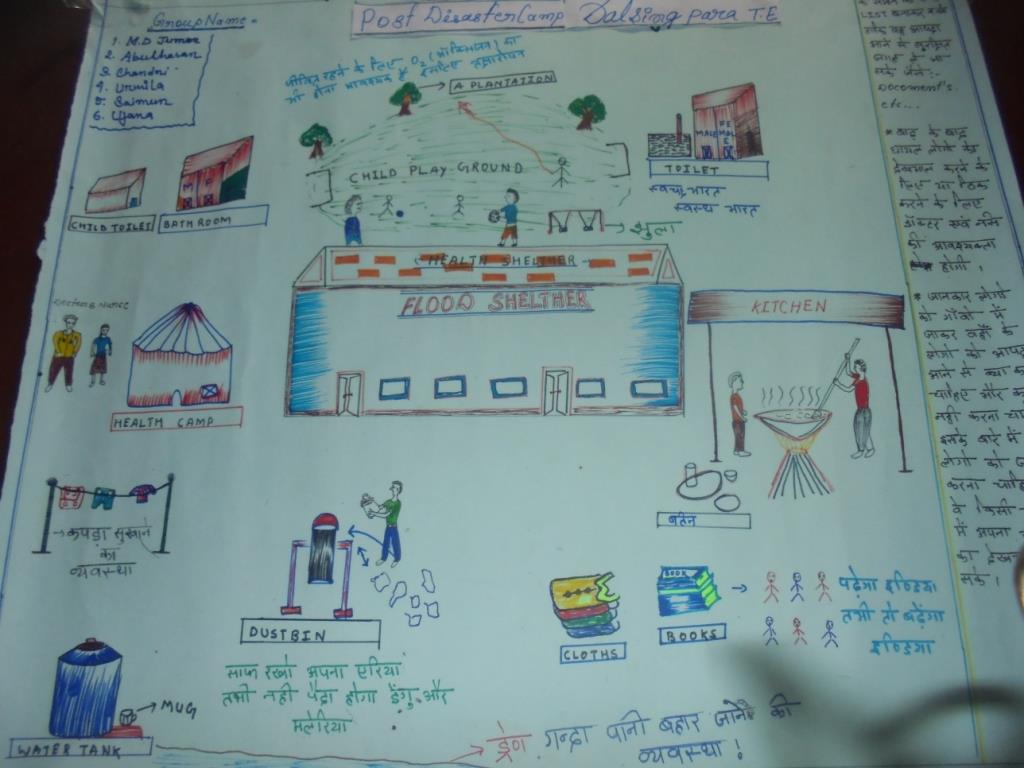 Group Name =
1. M.D Juman
2. Abulhasan
3. Chandni
4. Urmila
5. Saimun
6. Ujana
Post Disaster Camp Dalsing para T.E
जीवित रहने के लिए O2 (ऑक्सिजन) का
भी होना आवश्यक है इसलिए वृक्षारोपन
A PLANTATION
CHILD PLAY GROUND
FE
MALE MALE
TOILET
स्वच्छ भारत
स्वस्थ भारत
झुला
CHILD TOILET
M F
BATH ROOM
HEALTH SHELTHER
FLOOD SHELTHER
KITCHEN
HEALTH CAMP
बर्तन
कपड़ा सुखाने
का
व्यवस्था
DUSTBIN
साफ रखो अपना एरिया
तभी नही पैदा होगा डेंगु और
मलेरिया
CLOTHS
BOOK
BOOKS
पढ़ेगा इण्डिया
तभी तो बढ़ेगा
इण्डिया
MUG
WATER TANK
ड्रेण गन्दा पानी बहार जाने की
व्यवस्था!
LIST बनाकर
Document's
etc...
* बाढ़ के बाद
घायल लोगो
देखभाल करने के
लिए या ठिक
करने के लिए
डॉक्टर एवं नर्स
की आवश्यकता
होगी।
* जानकार लोगो
को गाँवो में
जाकर वहाँ के
लोगो को
आने में क्या
चाहिए और
नही करना
इसके बारे में
लोगो को
करना चाहिए
वे किसी
में अपना
का देख
सके।